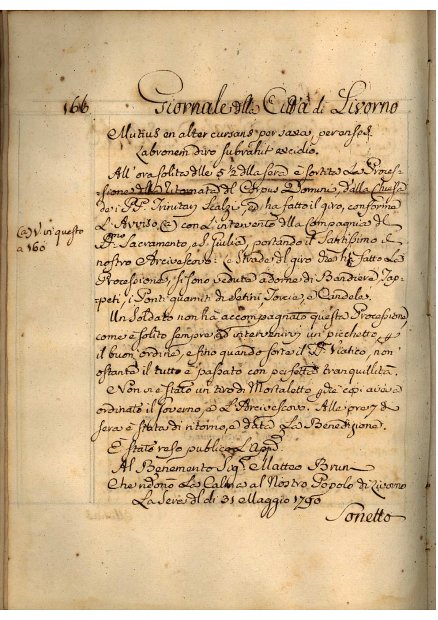 166 Giornale della Città di Livorno
Mutius en alter cursans per saxa, per enses
Labronem diro subrahit excidio.
All'ora solita delle 5½ della sera è sortita La Proces-
sione della Ottava del Corpus Domini, dalla Chiesa
de i PP. Trinitarj Scalzi, ed ha fatto il giro, conforme
(a) V. in questo
a 160
L'Avviso (a) con L'intervento della Compagnia del
SS. Sacramento, e S. Giulia, portando il Santissimo il
nostro Arcivescovo: e Strade del giro che hà fatto La
Processione, si sono vedute adorne di Bandiere, Tap-
peti, i Ponti guarniti di Setini, Torcie, e Candele.
Un Soldato non hà accompagnato questa Processione,
come è solito sempre ad intervenirvi un picchetto per
il buon ordine, e fino quando sorte il SS. Viatico, non
ostante il tutto è passato con perfetta tranquillità.
E non vi è stato un tiro di Mortaletto, che così aveva
ordinato il Governo, e L'Arcivescovo. Alle ore 7 di
sera è stata di ritorno, e data La Benedizione.
È stato reso publico L'app.
Al Benemerito Sig. Matteo Brun
Che ridonò La Calma al Nostro Popolo di Livorno
La Sera del di 31 Maggio 1790
Sonetto